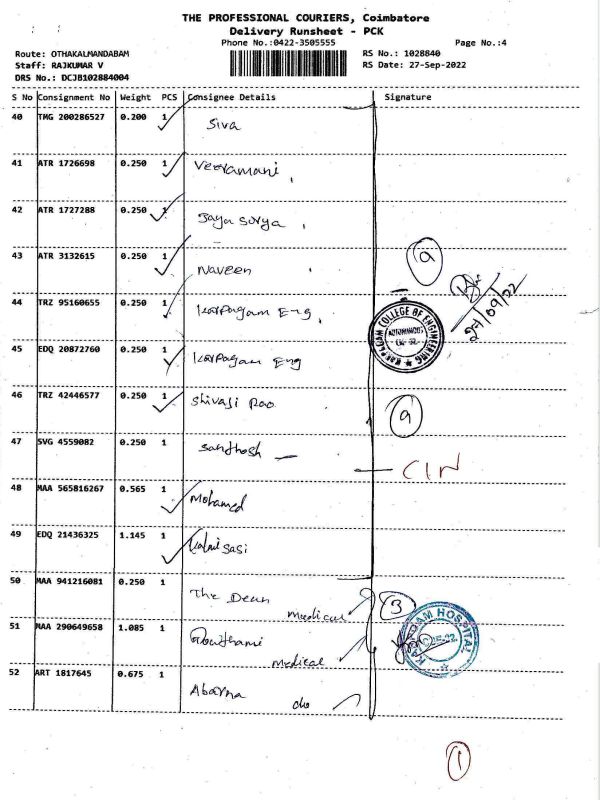 THE PROFESSIONAL COURIERS, Coimbatore
Delivery Runsheet - PCK
Phone No.:0422-3505555 Page No.:4
Route: OTHAKALMANDABAM RS No.: 1028840
Staff: RAJKUMAR V RS Date: 27-Sep-2022
DRS No.: DCJB102884004
S No Consignment No Weight PCS Consignee Details Signature
40 TMG 200286527 0.200 1 Siva
41 ATR 1726698 0.250 1 Veeramani
42 ATR 1727288 0.250 1 Jaya Surya
43 ATR 3132615 0.250 1 Naveen
9
27/09/22
44 TRZ 95160655 0.250 1 Karpagam Eng
KARPAGAM COLLEGE OF ENGINEERING
AUTONOMOUS
45 EDQ 20872760 0.250 1 Karpagam Eng
46 TRZ 42446577 0.250 1 Shivaji Rao
9
47 SVG 4559082 0.250 1 Santhosh
CIN
48 MAA 565816267 0.565 1 Mohamed
49 EDQ 21436325 1.145 1 sasi
50 MAA 941216081 0.250 1 The Dean
medical
3
51 MAA 290649658 1.085 1 Gouthami
medical
HOSPITAL
52 ART 1817645 0.675 1 Abarna
do
1